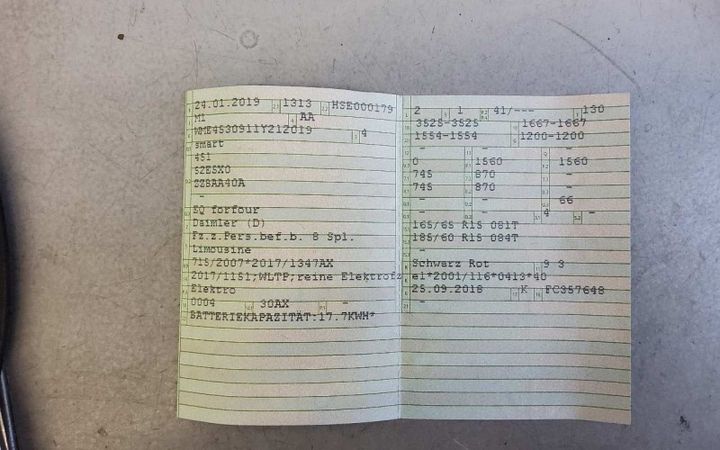 24.01.2019 1313 HSE000179
M1 AA
WME4530911Y212019 4
smart
451
S2ESX0
SZBAA40A
-
EQ forfour
Daimler (D)
Fz.z.Pers.bef.b. 8 Spl.
Limousine
715/2007*2017/1347AX
2017/1151;WLTP;reine Elektrofz
Elektro
0004 30AX -
BATTERIEKAPAZITÄT:17.7KWH*
2 1 41/--- 130
3525-3525 1667-1667
1554-1554 1200-1200
- - -
0 1560 1560
745 870 -
745 870 -
- - 66
- - 4 -
165/65 R15 081T
185/60 R15 084T
-
Schwarz Rot 9 3
e1*2001/116*0413*40
25.09.2018 K FC357648
- -